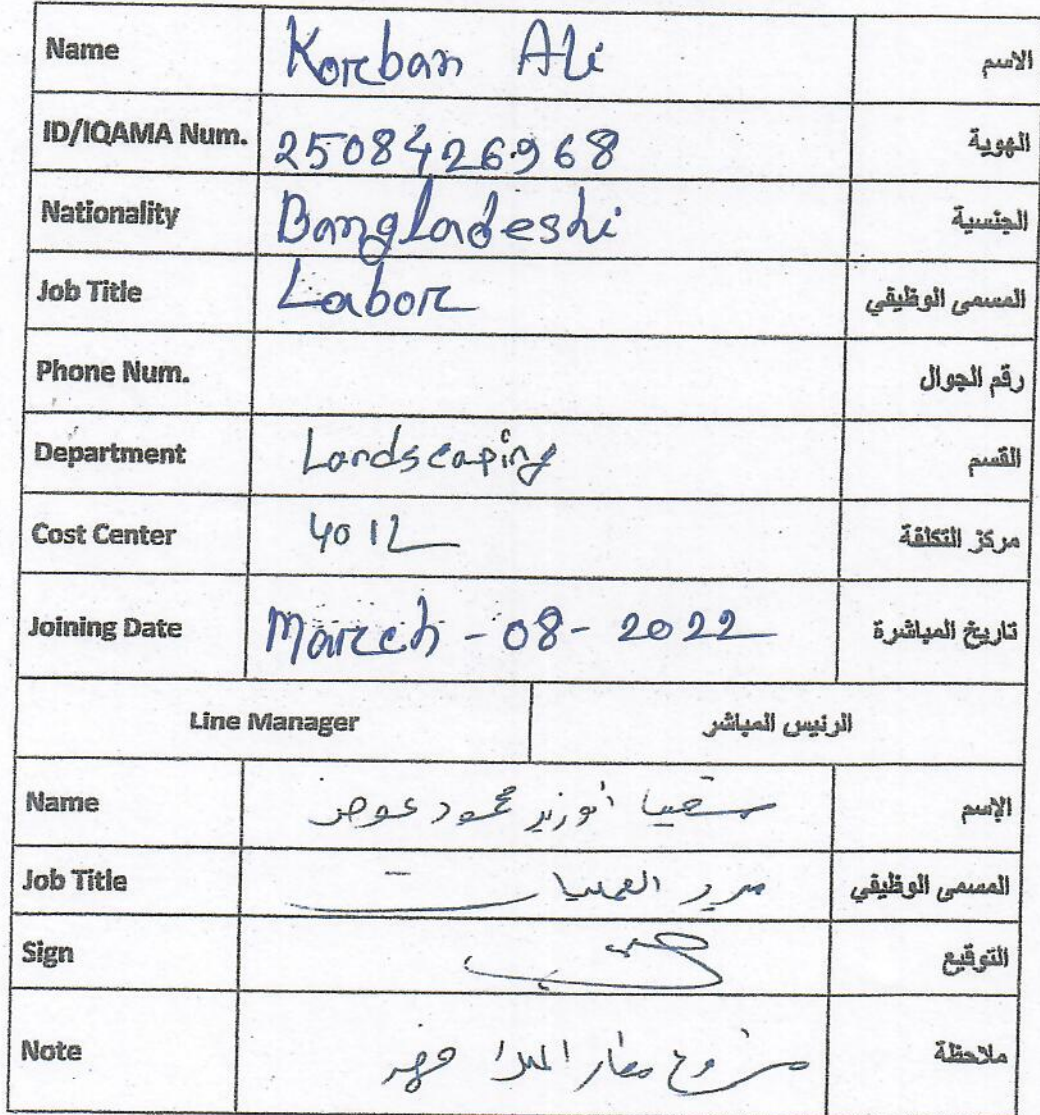 Name Korban Ali الاسم
ID/IQAMA Num. 2508426968 الهوية
Nationality Bangladeshi الجنسية
Job Title Labor المسمى الوظيفي
Phone Num. رقم الجوال
Department Landscaping القسم
Cost Center مركز التكلفة
Joining Date March - 08 - 2022 تاريخ المباشرة
Line Manager الرئيس المباشر
Name أبوزيد محمود عوض الإسم
Job Title مدير العمليات المسمى الوظيفي
Sign التوقيع
Note مشروع مطار الملك فهد ملاحظة